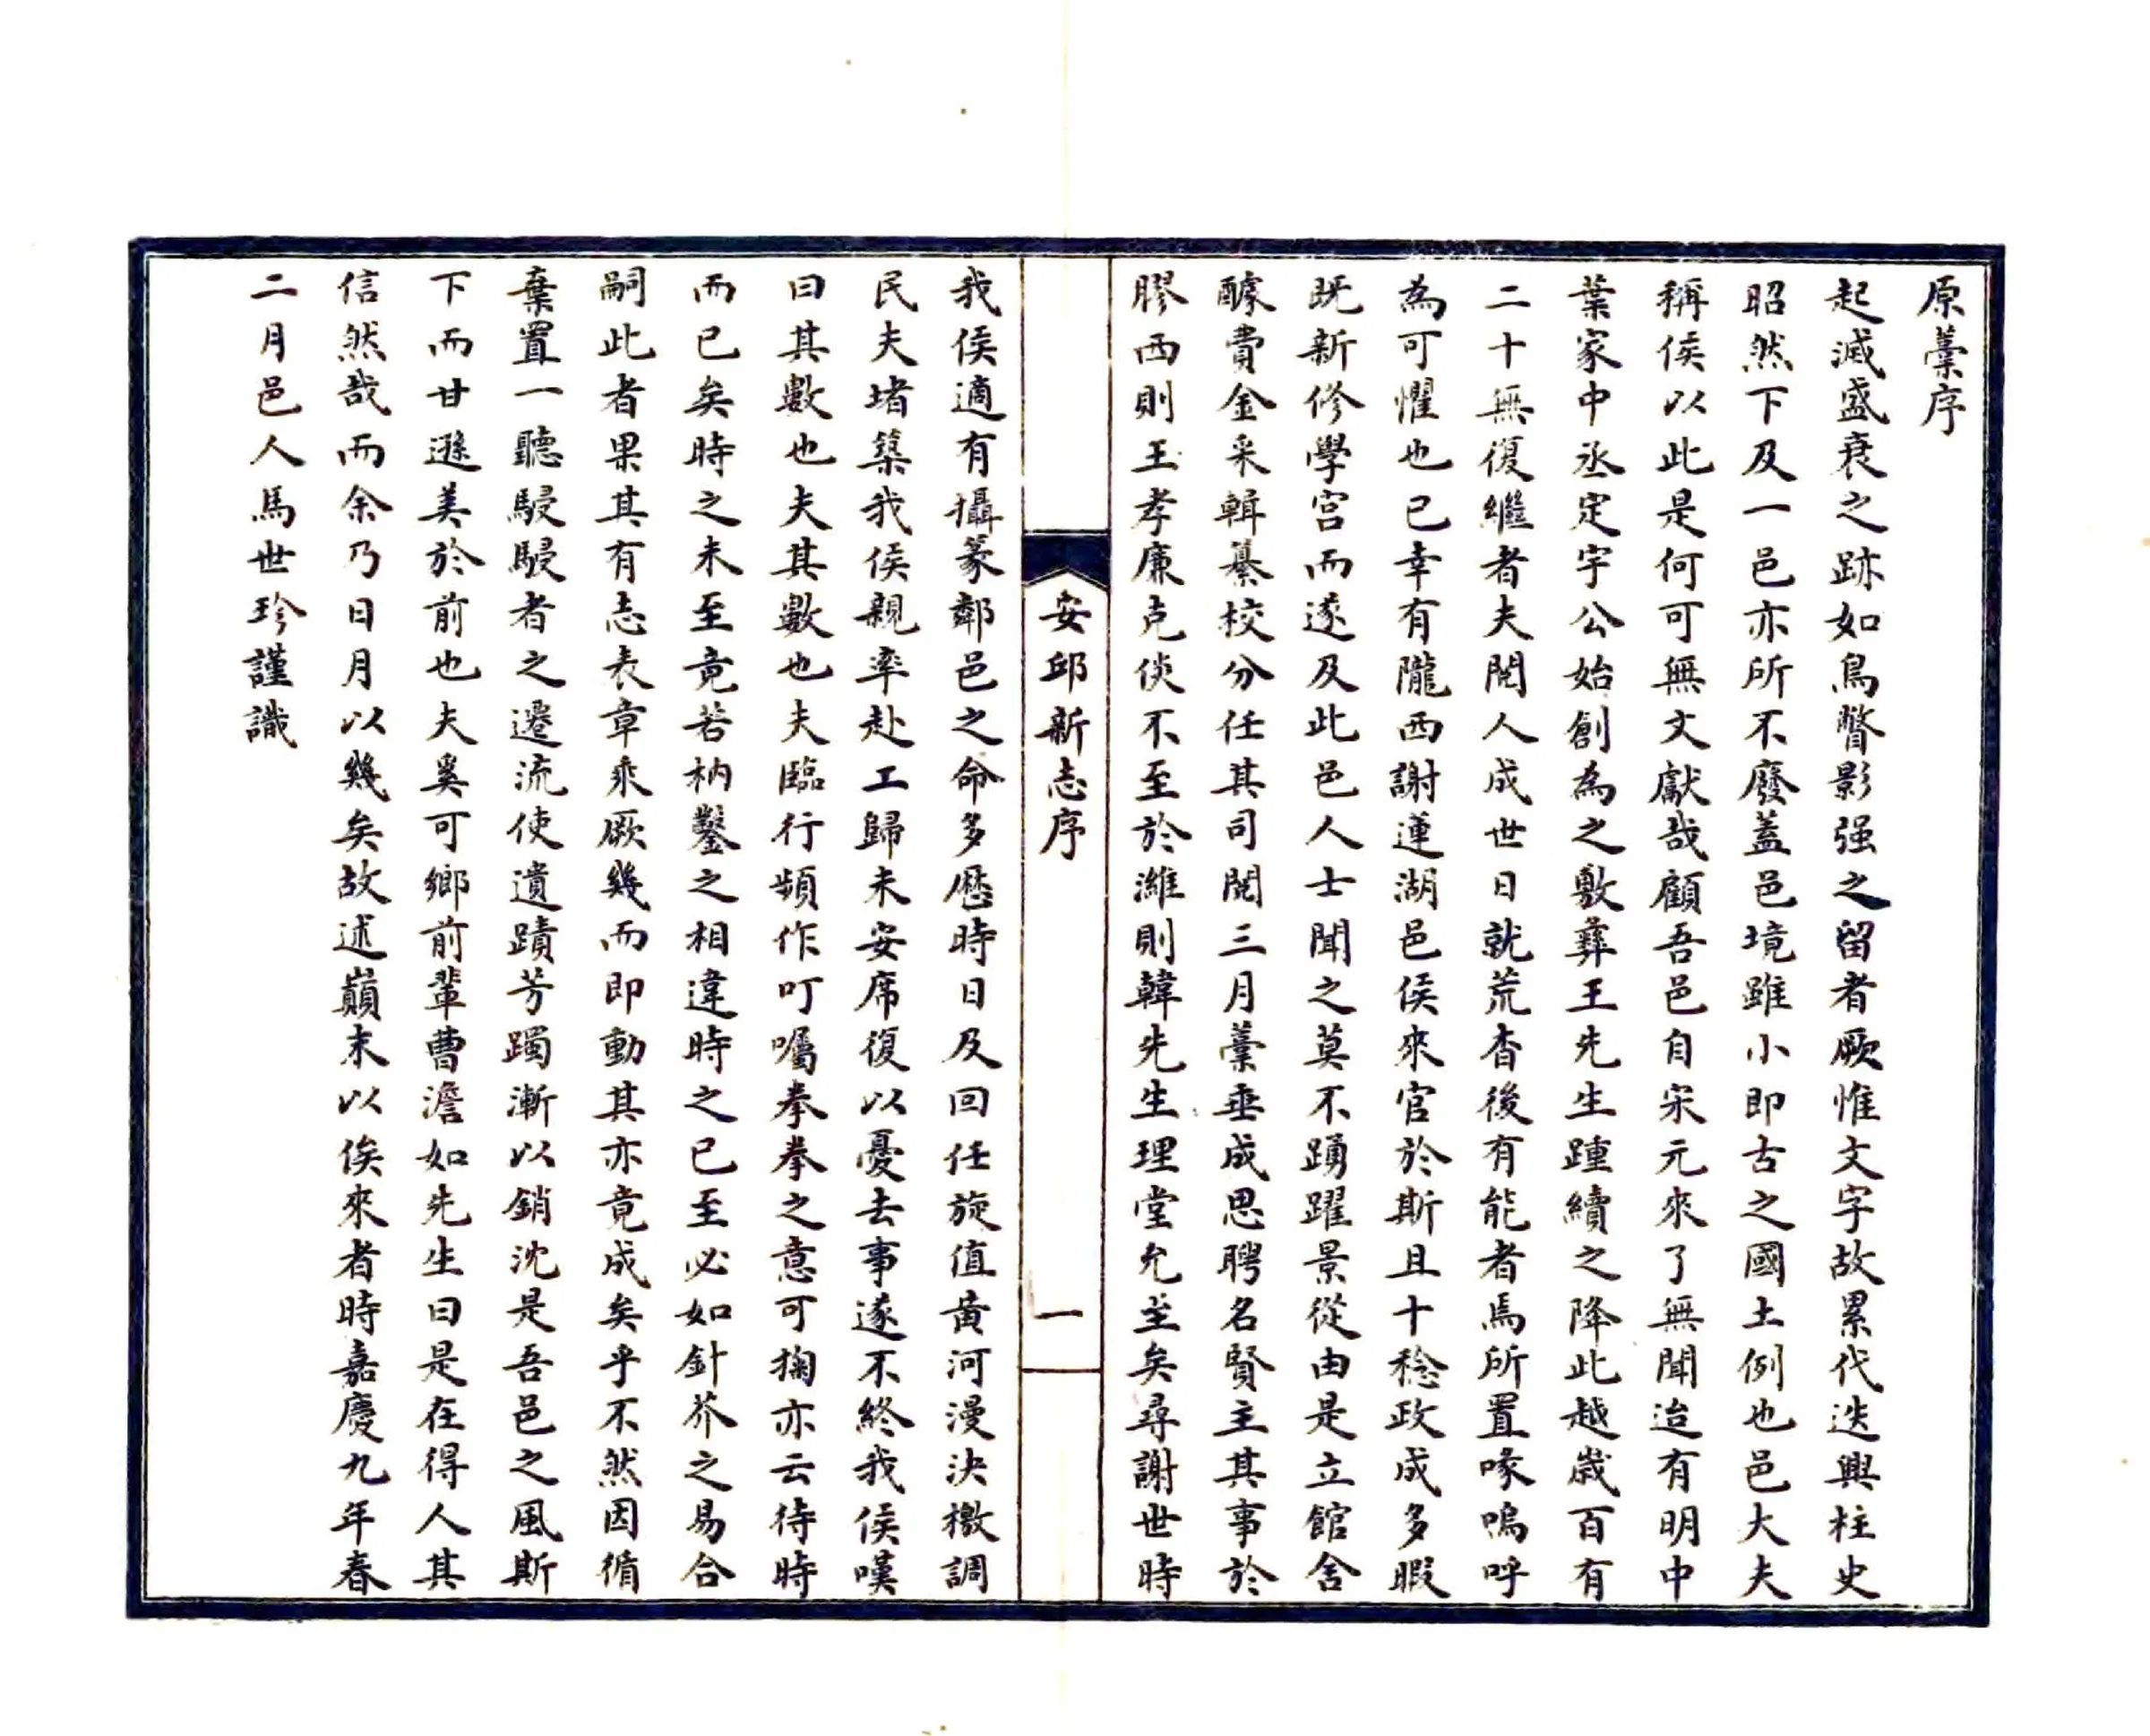 原藁序
起滅盛衰之跡如鳥瞥影强之留者厥惟文字故累代迭興柱史
昭然下及一邑亦所不廢蓋邑境雖小即古之國土例也邑大夫
稱侯以此是何可無文獻哉顧吾邑自宋元來了無聞迨有明中
葉家中丞定宇公始創為之敷彝王先生踵續之降此越歲百有
二十無復繼者夫閱人成世日就荒杳後有能者焉所置喙嗚呼
為可懼也已幸有隴西謝蓮湖邑侯來官於斯且十稔政成多暇
既新修學宮而遂及此邑人士聞之莫不踴躍景從由是立館舍
醵費金采輯纂校分任其司閱三月藁垂成思聘名賢主其事於
膠西則王孝廉克倓不至於濰則韓先生理堂允至矣尋謝世時
安邱新志序
一
我侯適有攝篆鄰邑之命多歷時日及回任旋值黃河漫決檄調
民夫堵築我侯親率赴工歸未安席復以憂去事遂不終我侯嘆
曰其數也夫其數也夫臨行頻作叮囑拳拳之意可掬亦云待時
而已矣時之未至竟若枘鑿之相違時之已至必如針芥之易合
嗣此者果其有志表章乘厥幾而即動其亦竟成矣乎不然因循
棄置一聽駸駸者之遷流使遺蹟芳躅漸以銷沈是吾邑之風斯
下而甘遜美於前也夫奚可鄉前輩曹澹如先生曰是在得人其
信然哉而余乃日月以幾矣故述巔末以俟來者時嘉慶九年春
二月邑人馬世珍謹識